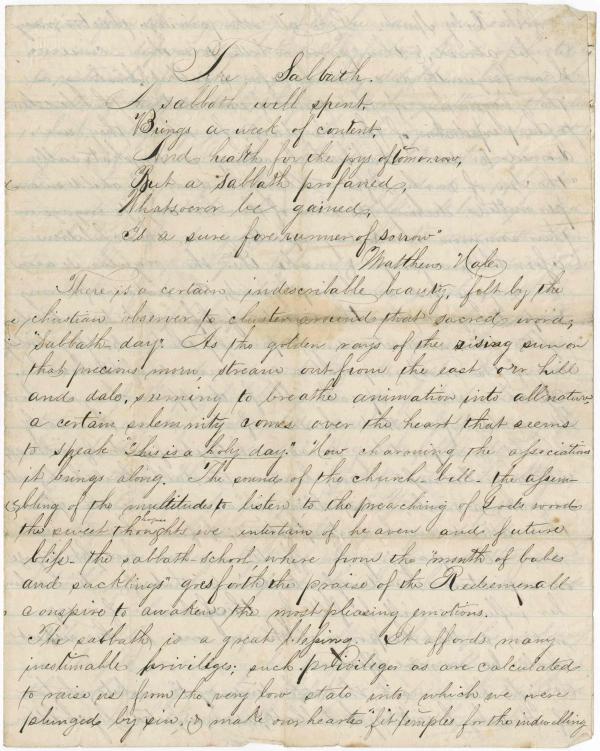 The Sabbath.
"A sabbath well spent,
Brings a week of content,
And health for the joys of tomorrow,
But a sabbath profaned,
Whatsoever be gained,
Is a sure forerunner of sorrow"
Matthew Hale.
There is a certain indescribable beauty, felt by the
christian observer to cluster around that sacred word,
"Sabbath day." As the golden rays of the rising sun on
that precious morn stream out from the east o'er hill
and dale, seeming to breathe animation into all nature,
a certain solemnity comes over the heart that seems
to speak "This is a holy day." How charming the associations
it brings along. The sound of the church-bell- the assem-
bling of the multitudes to listen to the preaching of Gods word
the sweet thoughts we entertain of heaven and future
life- the sabbath-school where from the "mouth of babes
and sucklings" goes forth the praise of the Redeemer all
conspire to awaken the most pleasing emotions.
The sabbath is a great blessing. It affords many
inestimable privileges; such privileges as are calculated
to raise us from the very low state into which we were
plunged by sin, & make our hearts "fit temples for the indwelling